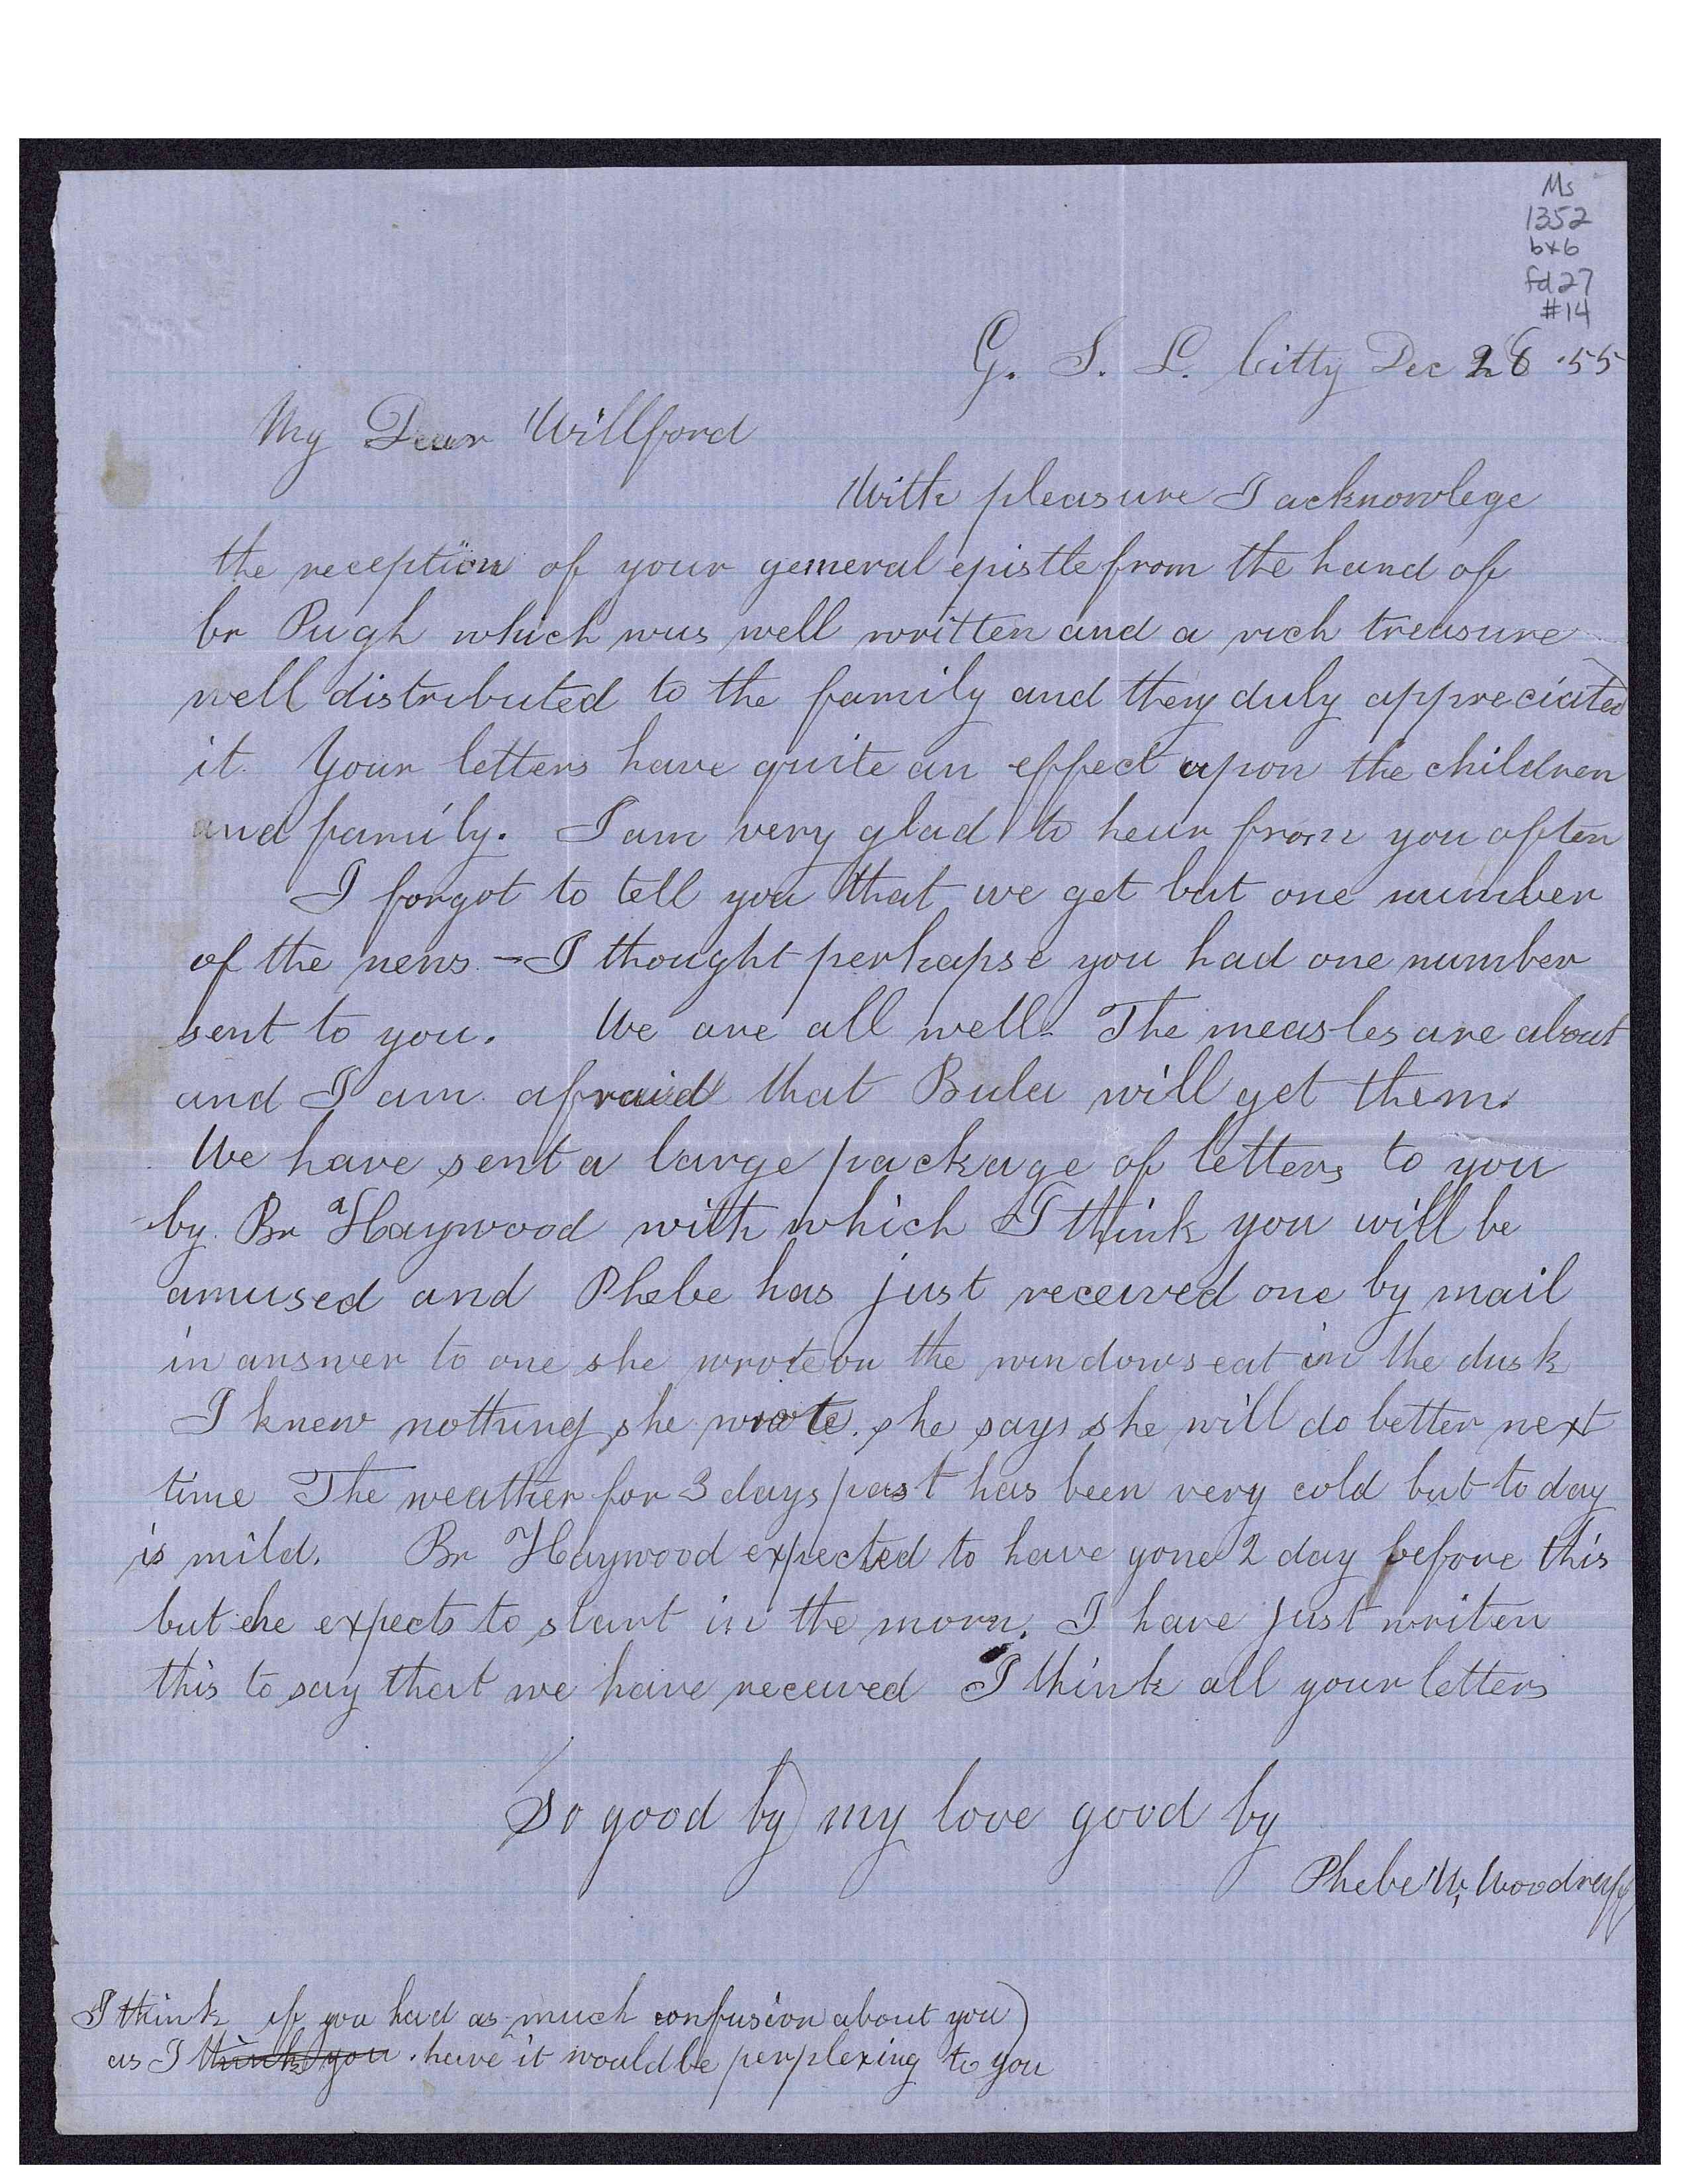 Ms
1352
bx6
fd27
#14
G. S. L. Citty Dec 28 .55
My Dear Willford
With pleasure I acknowlege
the reception of your general epistle from the hand of
br Pugh which was well written and a rich treasure
well distributed to the family and they duly appreciated
it. Your letters have quite an effect upon the children
and family. I am very glad to hear from you often
I forgot to tell you that we get but one number
of the news - I thought perhapse you had one number
sent to you. We are all well. The measles are about
and I am afraid that Bula will get them.
We have sent a large package of letters to you
by Br Haywood with which I think you will be
amused and Phebe has just received one by mail
in answer to one she wrote on the window seat in the dusk
I knew nothing she wrote. she says she will do better next
time The weather for 3 days past has been very cold but to day
is mild. Br Haywood expected to have gone 2 day before this
but he expects to start in the morn. I have just writen
this to say that we have received I think all your letters
So good by my love good by
Phebe W. Woodruff
I think if you had as much confusion about you
as I think you have it would be perplexing to you